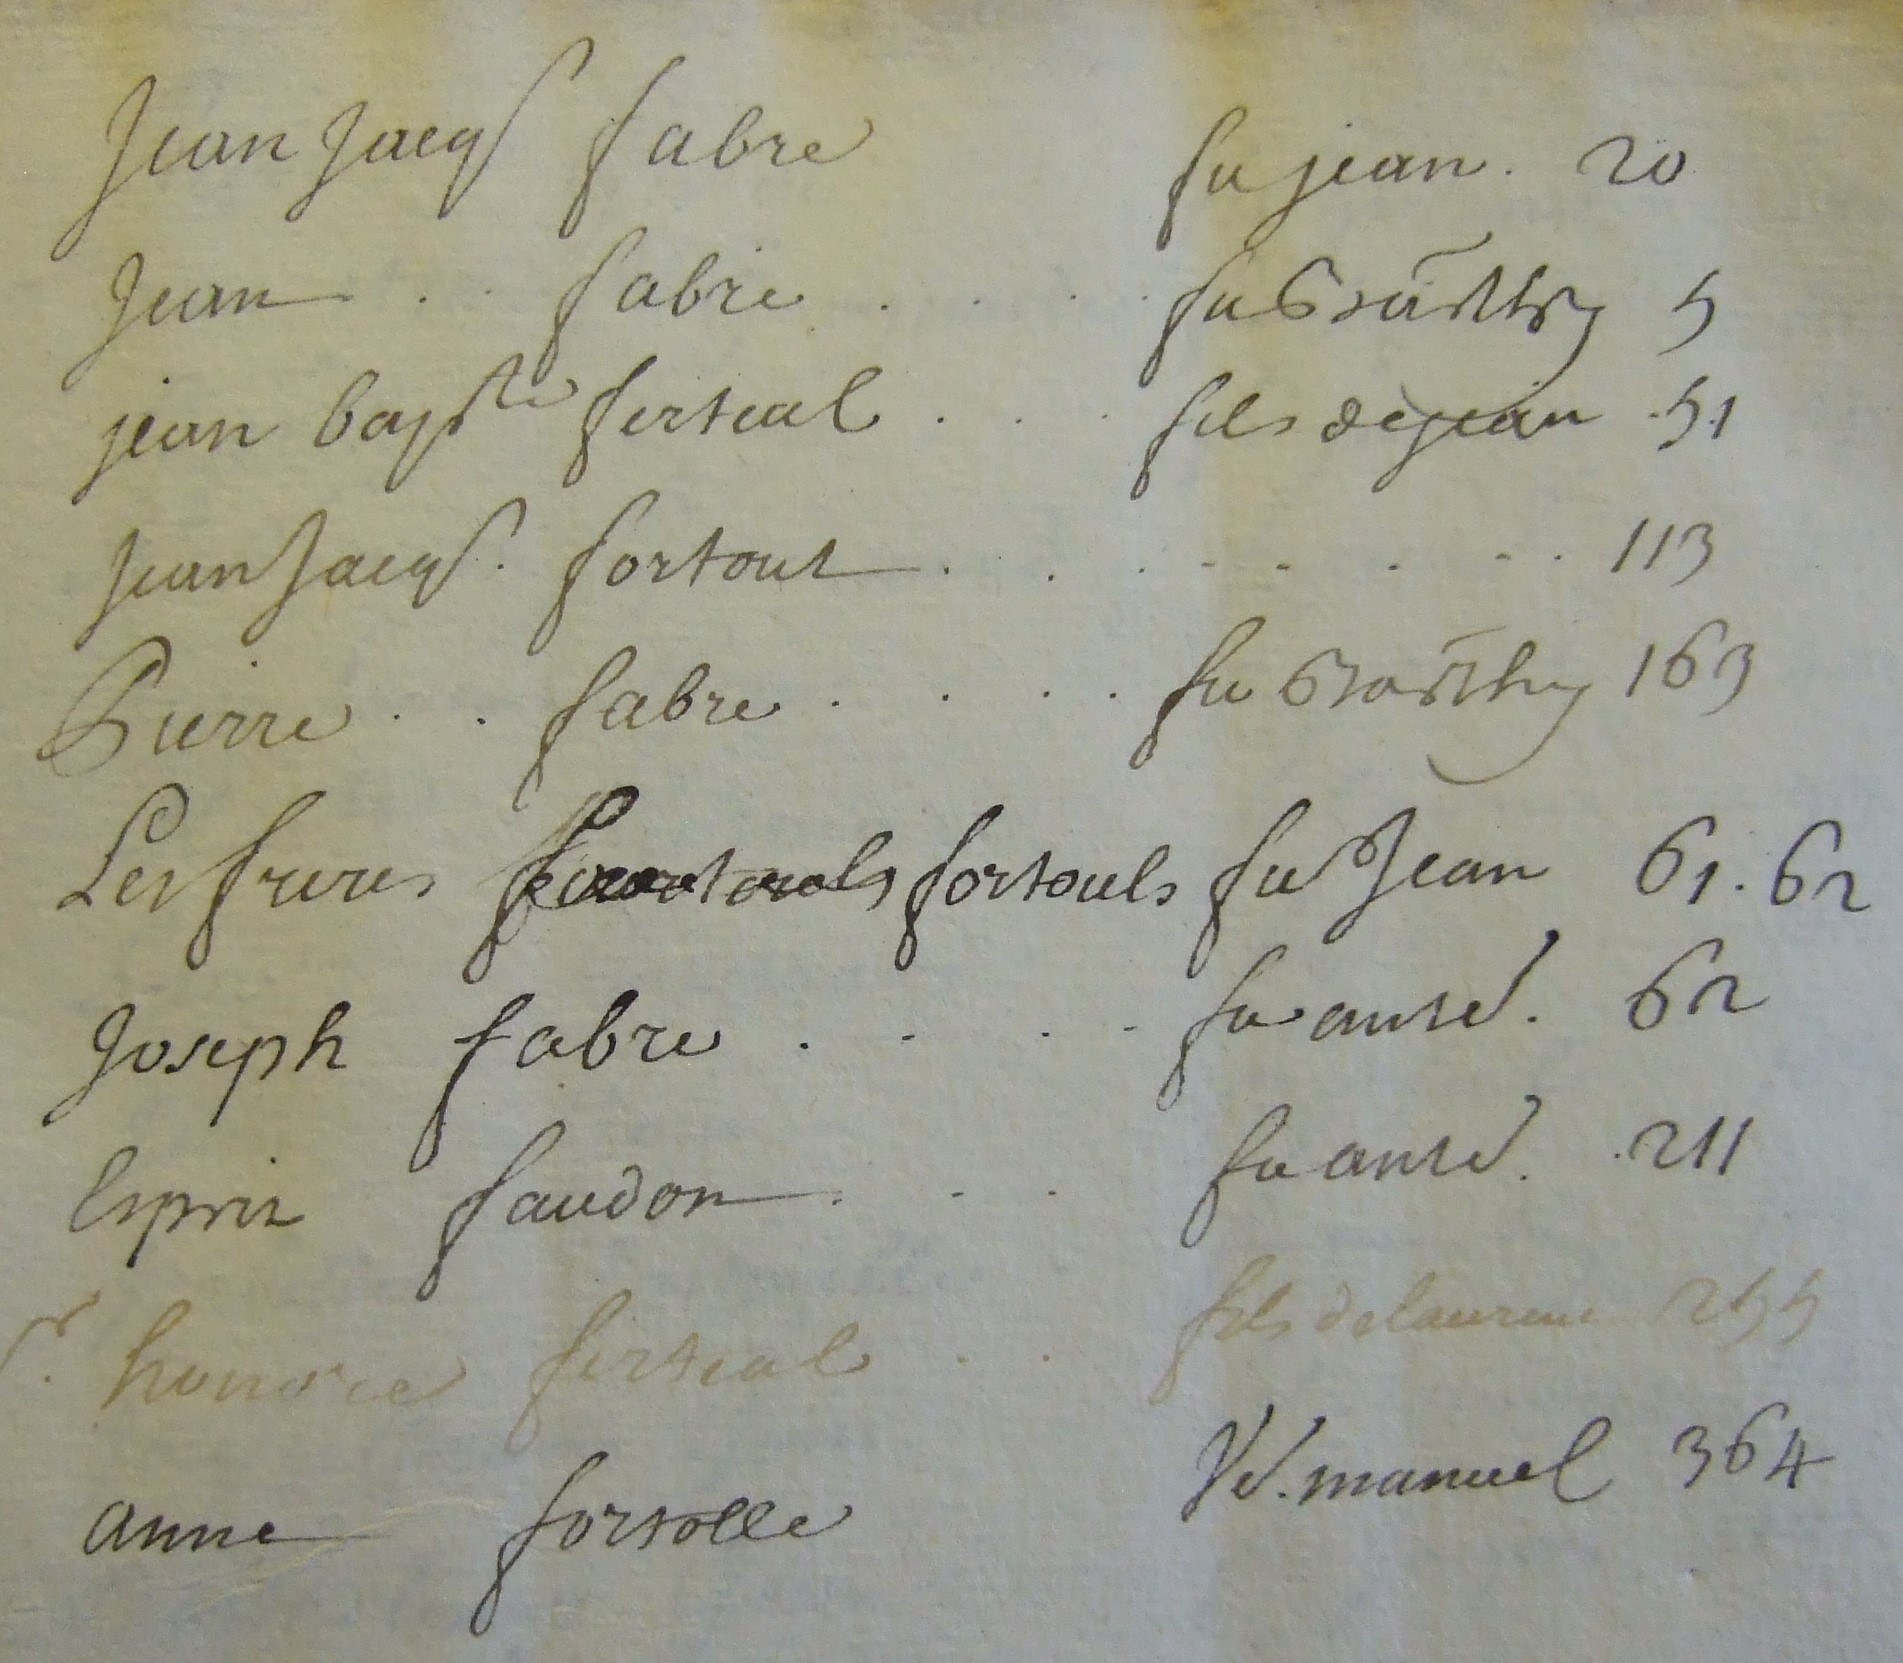 Jean Jacqs fabre fu jean. 20
Jean . . fabre . . . . fu Barthy 5
jean bapte ferteul . . . fils de jean .51
Jean Jacqs. fortout . . . . . . . . 113
Pierre . . fabre . . . . fu Barthy 163
Les freres fortouls fu Jean 61. 62
Joseph fabre . . . . fu anthe. 62
Esprit faudon . . . fu anthe. .211
Sr. honore ferteul . . fils de laurens 255
anne fortolle Ve. manuel 364